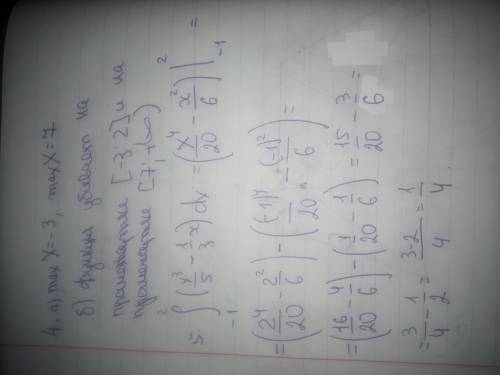 4. а) max X=-3, max X=7
б) Функция убывает на
промежутке [-3; 2] и на
промежутке [7; +∞)
5. ∫₋₁² (x³/5 - 1/3 x) dx = (x⁴/20 - x²/6) |₋₁² =
= (2⁴/20 - 2²/6) - ((-1)⁴/20 - (-1)²/6) =
= (16/20 - 4/6) - (1/20 - 1/6) = 15/20 - 3/6 =
= 3/4 - 1/2 = 3-2/4 = 1/4